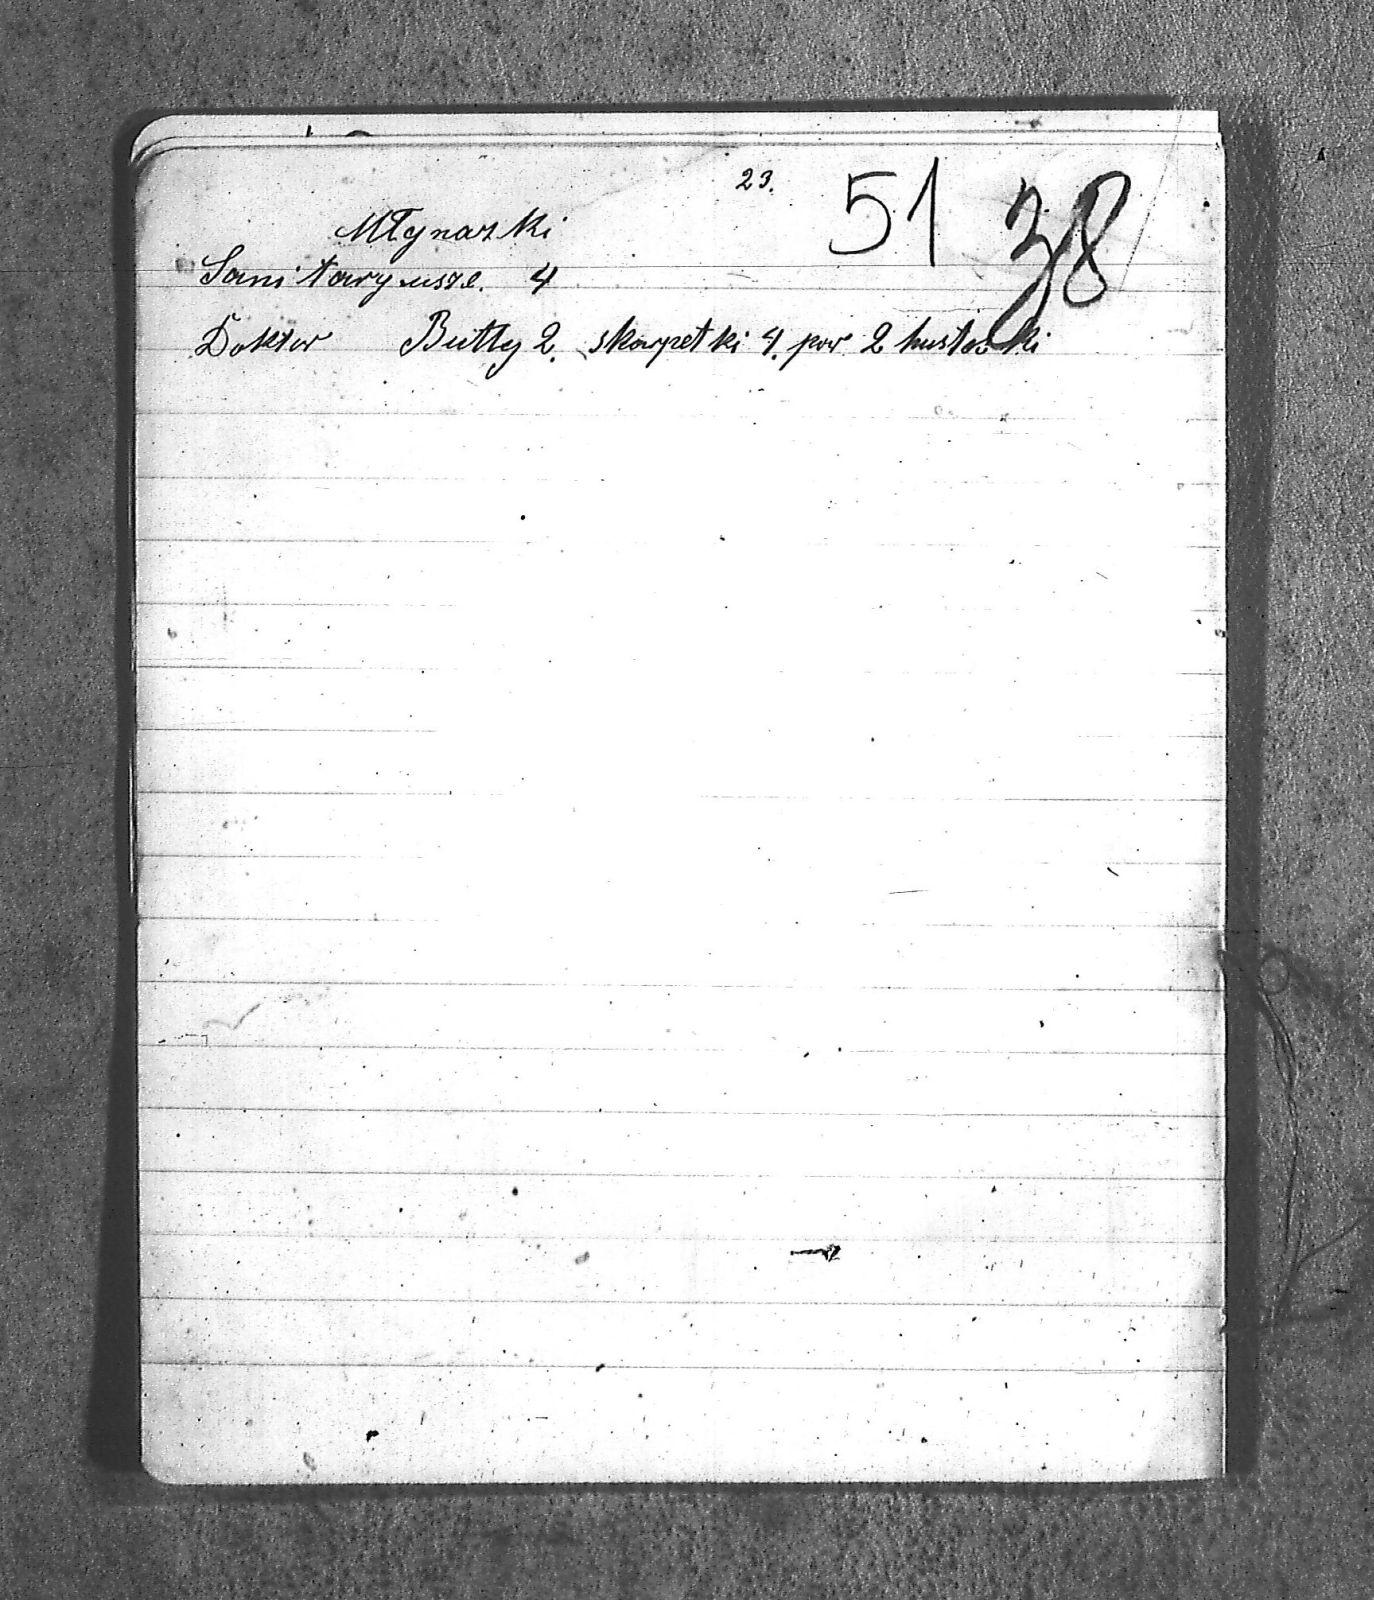 23. 51 38
Młynarki
Sanitaryusze. 4
Doktor Butty 2. skarpetki 4. par 2 hustecki